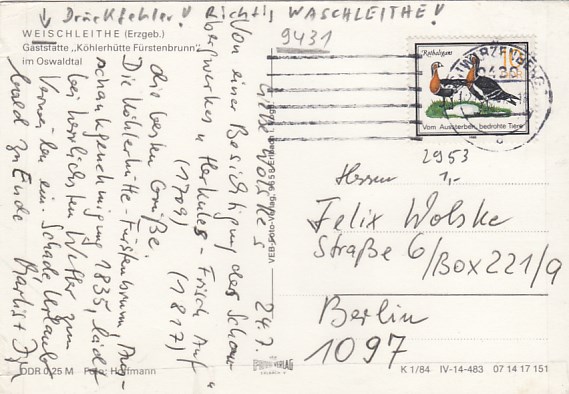 ↓ Druckfehler! Richtig WASCHLEITHE!
WEISCHLEITHE (Erzgeb.)
Gaststätte „Köhlerhütte Fürstenbrunn"
im Oswaldtal
9431
Rothalsgans
Vom Aussterben bedrohte Tiere
2953
1,-
Liebe Wolskes 24.7.
Von einer Besichtigung des Schau-
bergwerkes „Herkules-Frisch Auf"
(1709) (1817)
die besten Grüße.
Die Köhlerhütte-Fürstenbrunn, Aus-
schankgenehmigung 1835, lädt
bei herrlichsten Wetter zum
Verweilen ein. Schade Urlaub
bald zu Ende
Herrn
Felix Wolske
Straße 6/Box 221/9
Berlin
1097
DDR 0,25 M Foto: Hoffmann
K 1/84 IV-14-483 07 14 17 151